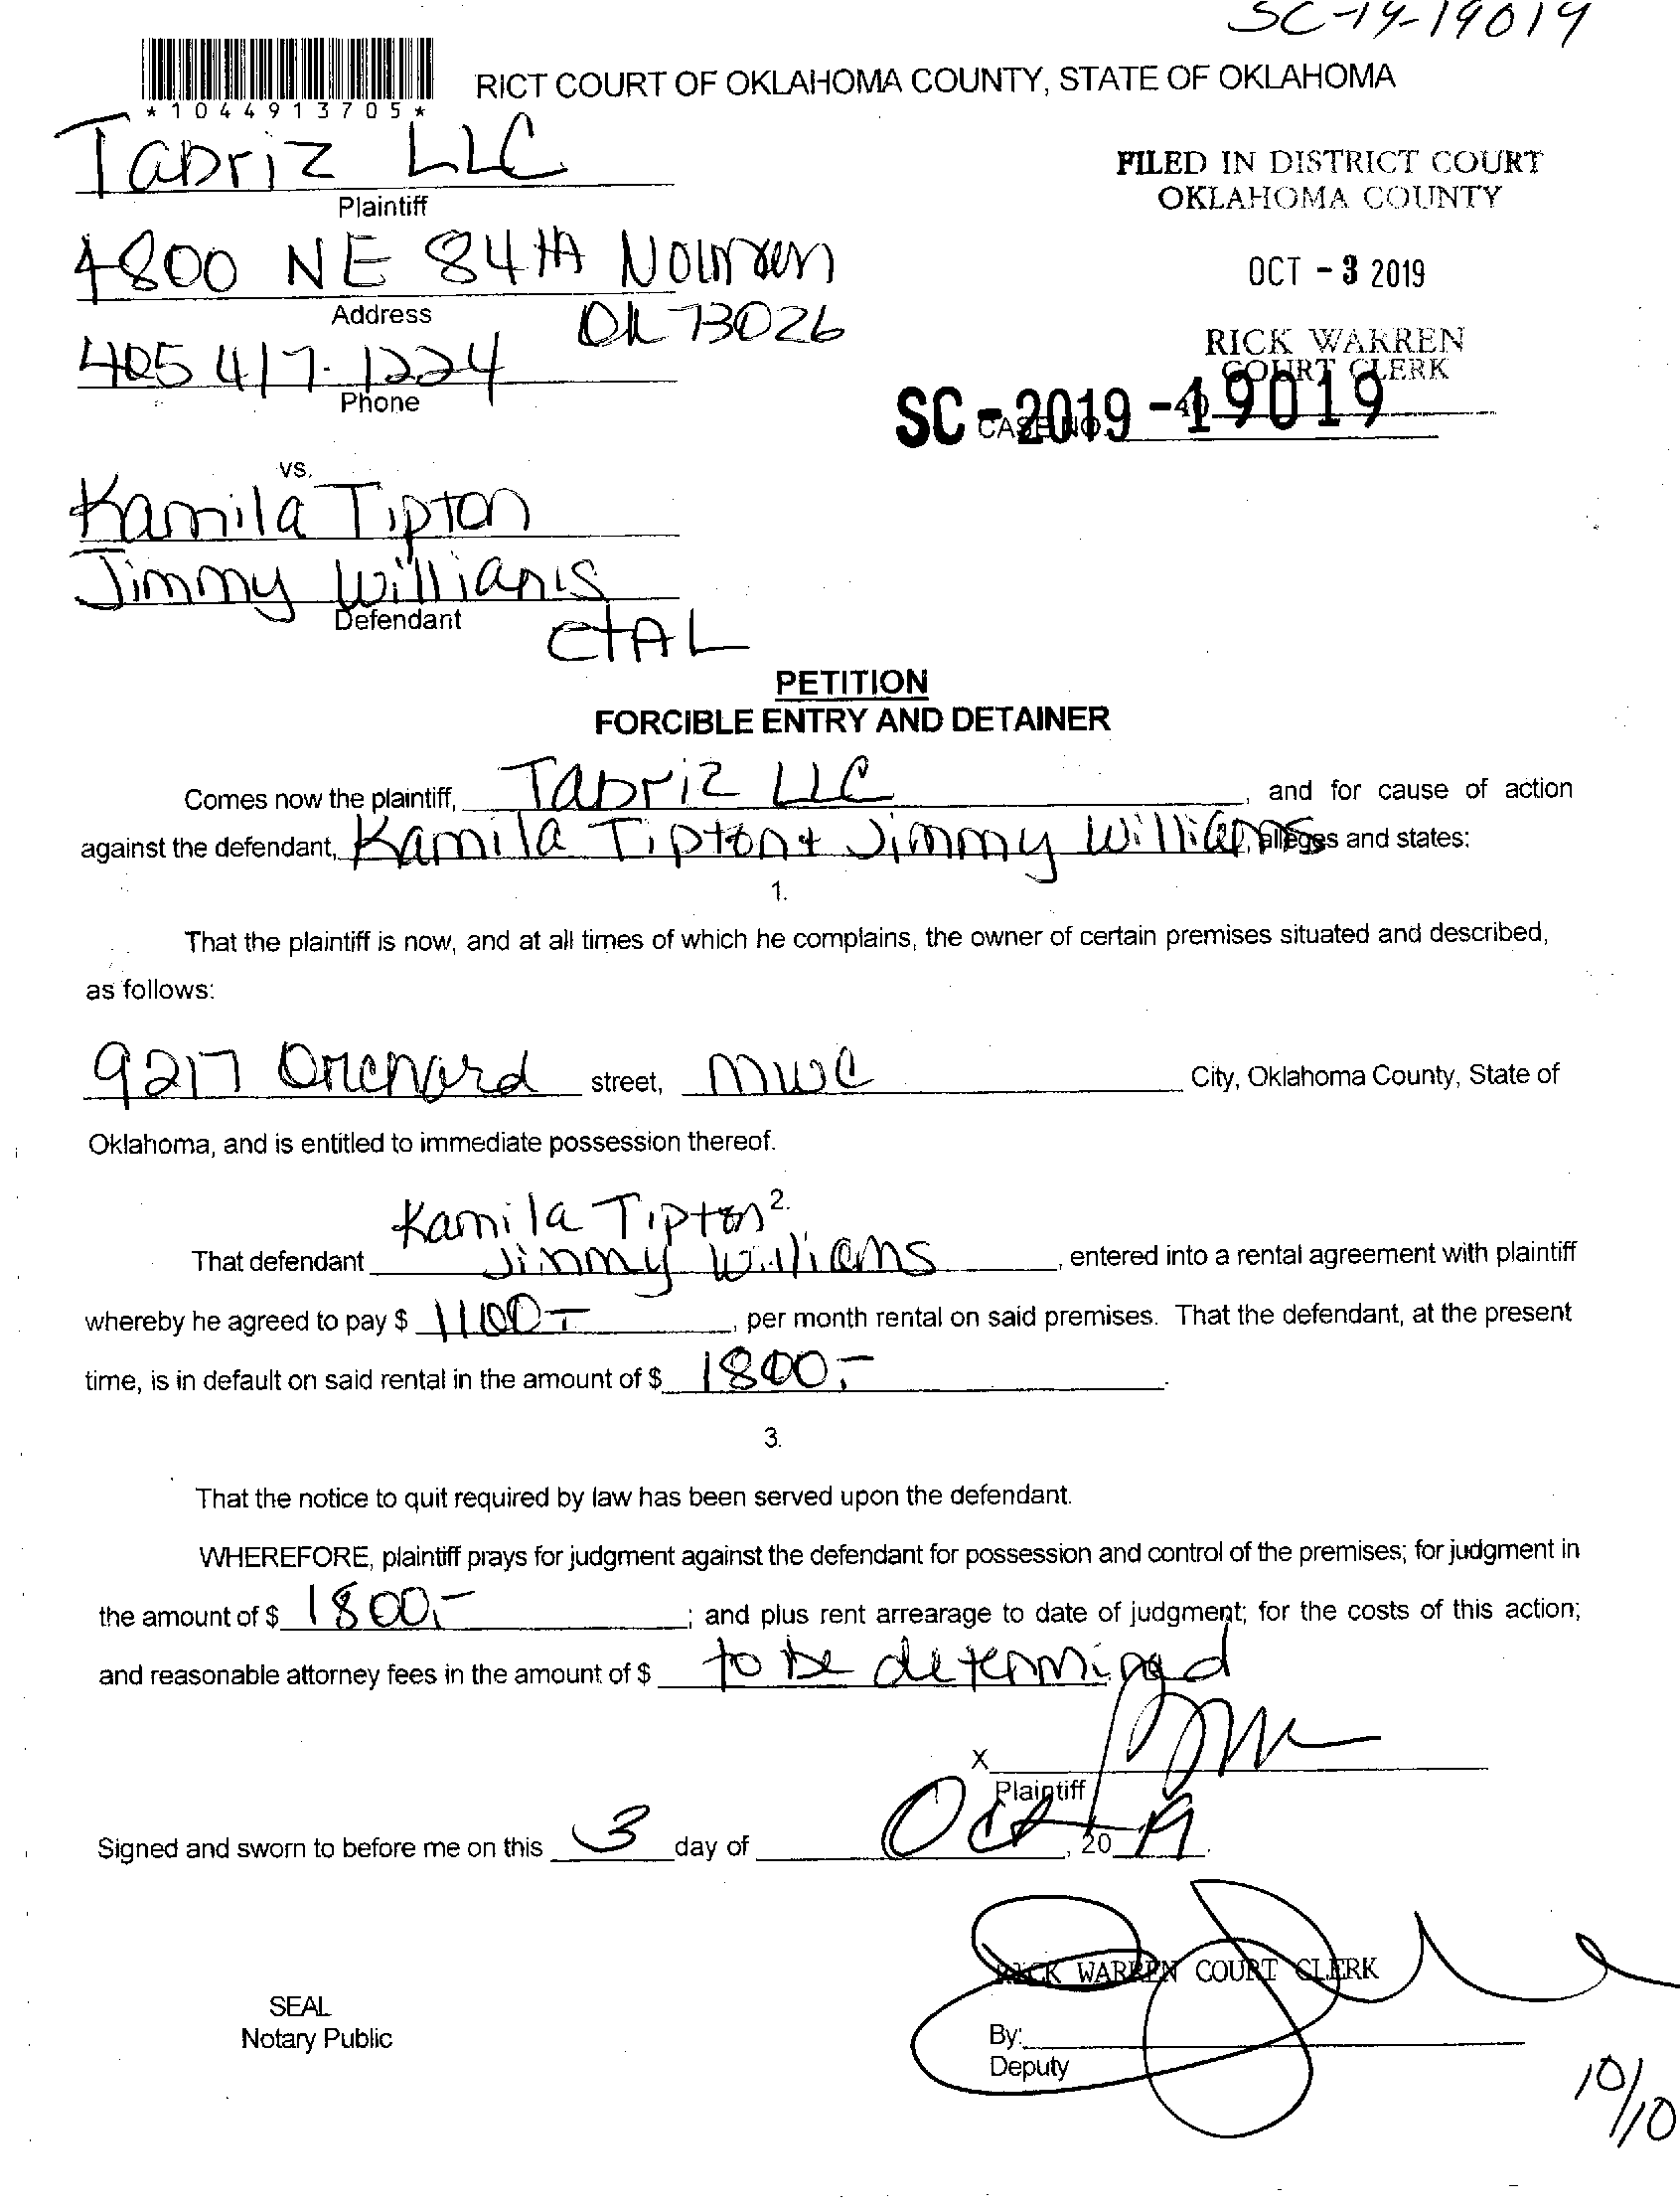 SC-19-19019
*1044913705*
RICT COURT OF OKLAHOMA COUNTY, STATE OF OKLAHOMA
Tabriz LLC
Plaintiff
FILED IN DISTRICT COURT
OKLAHOMA COUNTY
4800 NE 84th Norman
Address
OK 73026
OCT - 3 2019
405 417-1224
Phone
RICK WARREN
COURT CLERK
SC - 2019 - 19019
CASE NO.
vs.
Kamila Tipton
Jimmy Williams
Defendant
EtAL
PETITION
FORCIBLE ENTRY AND DETAINER
Comes now the plaintiff, Tabriz LLC, and for cause of action
against the defendant, Kamila Tipton + Jimmy Williams, alleges and states:
1.
That the plaintiff is now, and at all times of which he complains, the owner of certain premises situated and described,
as follows:
9217 Orchard street, MWC City, Oklahoma County, State of
Oklahoma, and is entitled to immediate possession thereof.
2.
Kamila Tipton
That defendant Jimmy Williams, entered into a rental agreement with plaintiff
whereby he agreed to pay $ 1100-, per month rental on said premises. That the defendant, at the present
time, is in default on said rental in the amount of $ 1800,-.
3.
That the notice to quit required by law has been served upon the defendant.
WHEREFORE, plaintiff prays for judgment against the defendant for possession and control of the premises; for judgment in
the amount of $ 1800,-; and plus rent arrearage to date of judgment; for the costs of this action;
and reasonable attorney fees in the amount of $ to be determined
X
Plaintiff
Signed and sworn to before me on this 3 day of Oct, 20 19.
RICK WARREN COURT CLERK
SEAL
Notary Public
By:
Deputy
10/10